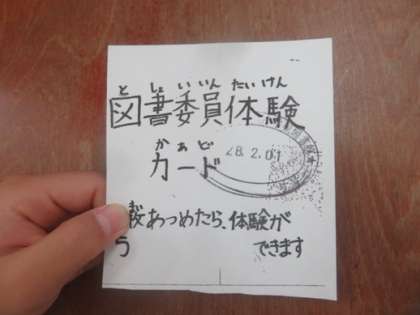 としょいいんたいけん
図書委員体験
かあど
カード
28.2.01
あつめたら、体験が
う できます